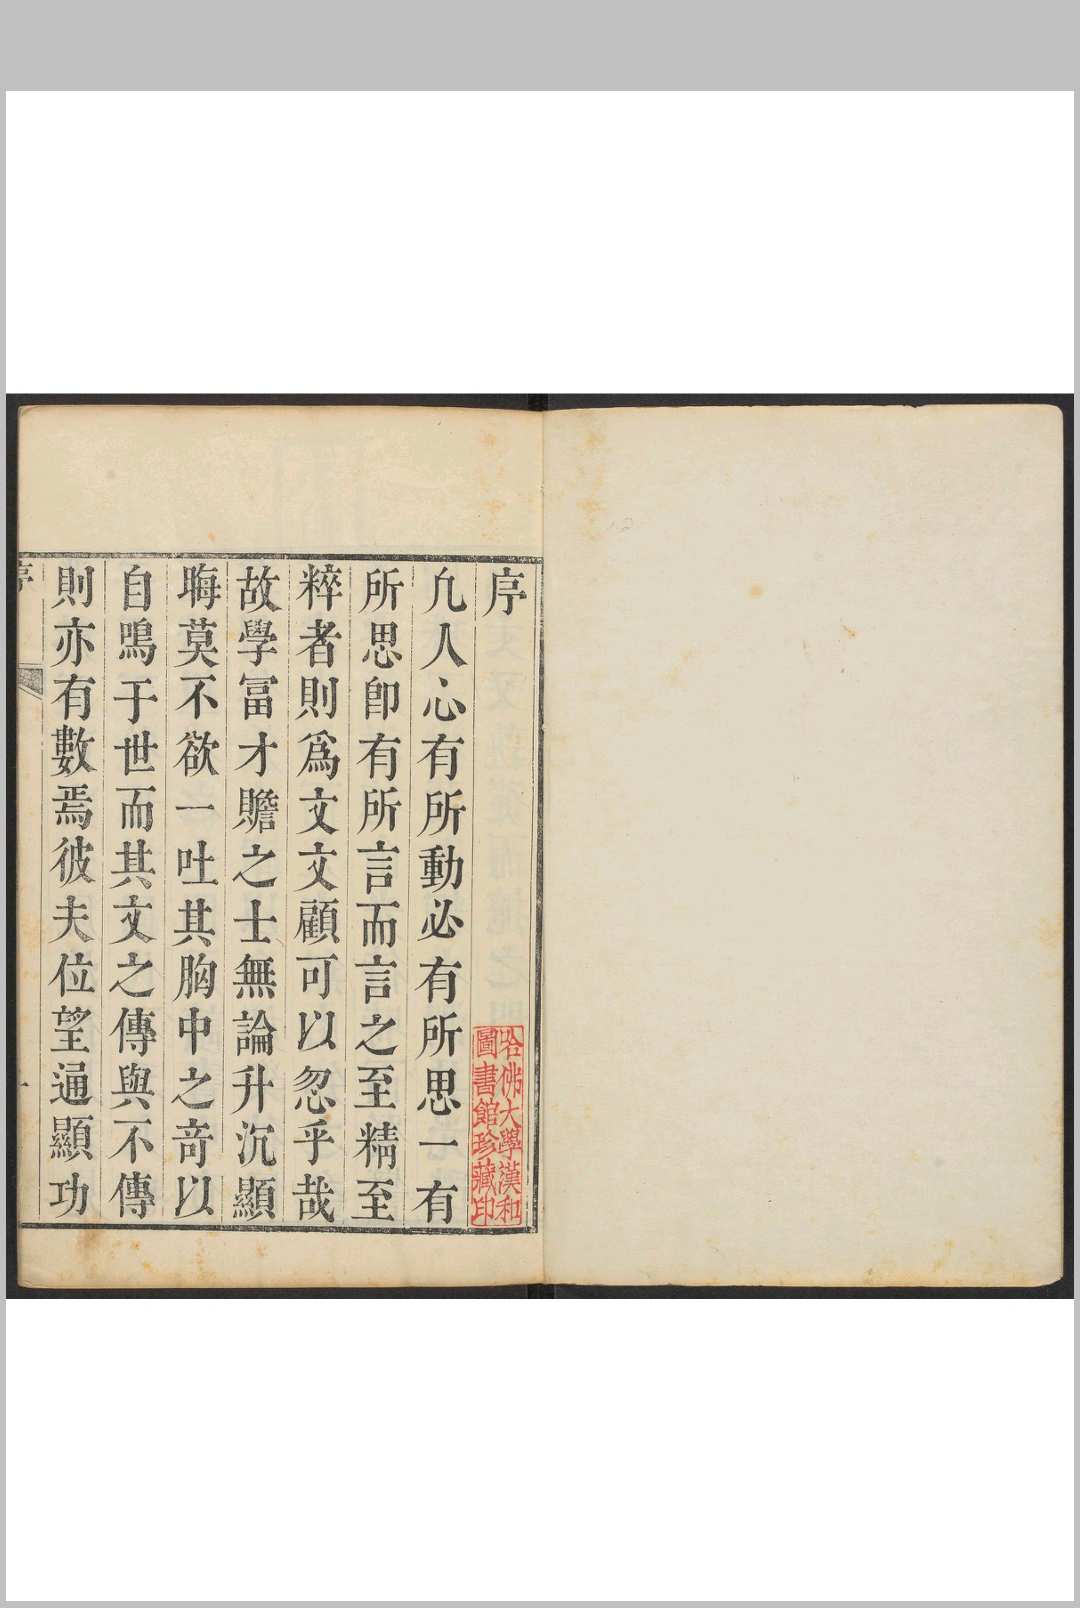 序
凡人心有所動必有所思一有
所思卽有所言而言之至精至
粹者則爲文文顧可以忽乎哉
故學冨才贍之士無論升沉顯
晦莫不欲一吐其胸中之竒以
自鳴于世而其文之傳與不傳
則亦有數焉彼夫位望通顯功
序
一
哈佛大學漢和
圖書館珍藏印